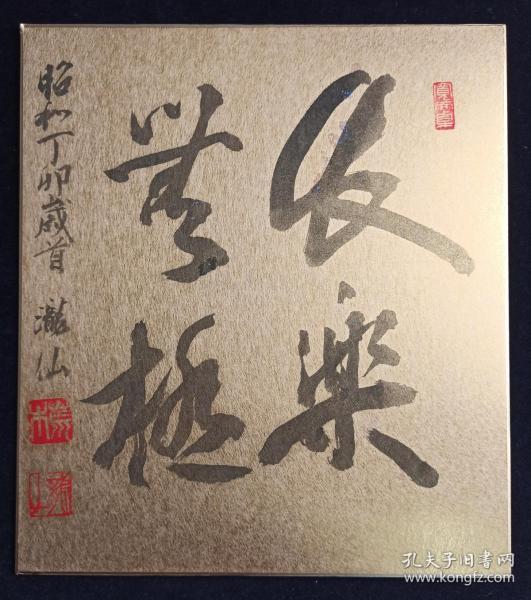 長樂
無極
昭和丁卯歲首 瀧仙
孔夫子旧书网
www.kongfz.com